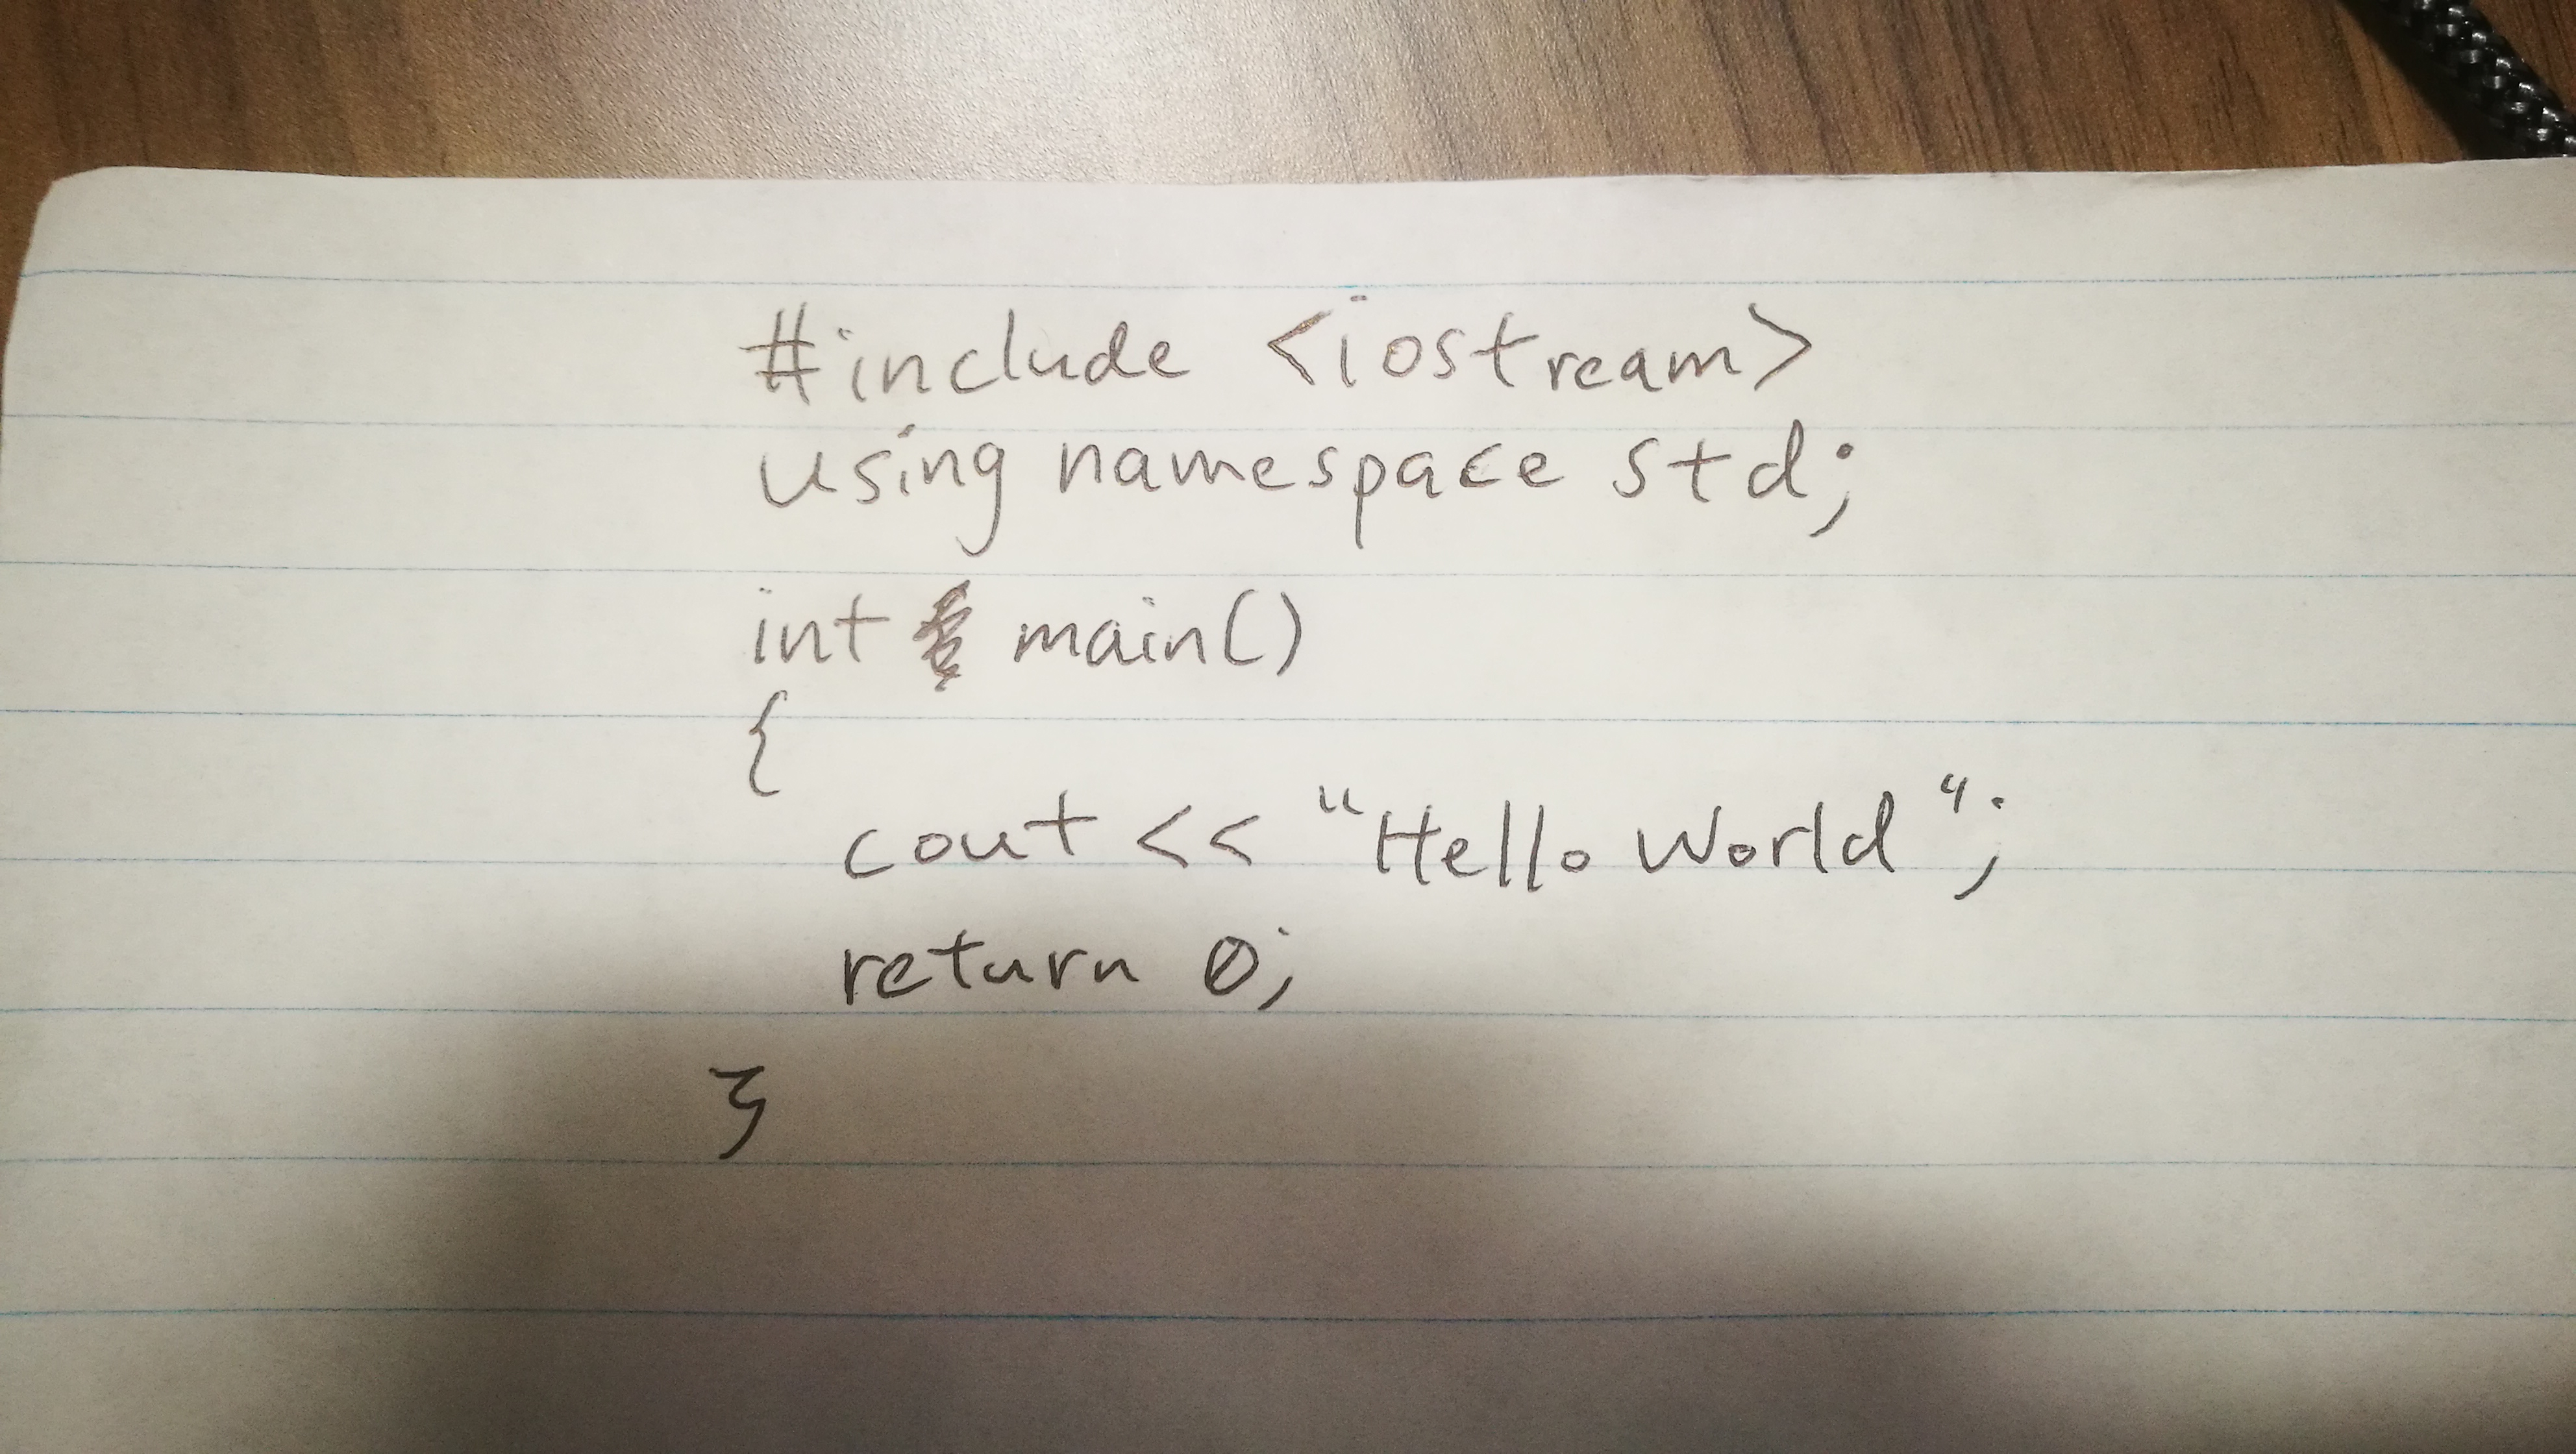 #include <iostream>
using namespace std;
int main()
{
cout << "Hello World";
return 0;
}